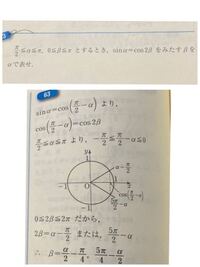 π/2≦α≦π, 0≦β≦π とするとき, sinα=cos2β をみたす β を
α で表せ.
63
sinα=cos(π/2−α) より,
cos(π/2−α)=cos2β
π/2≦α≦π より, −π/2≦π/2−α≦0
y
1
α−π/2
−1
O
1
x
−1
5π/2−α
cos(π/2−α)
0≦2β≦2π だから,
2β=α−π/2 または, 5π/2−α
∴ β=α/2−π/4, 5π/4−α/2